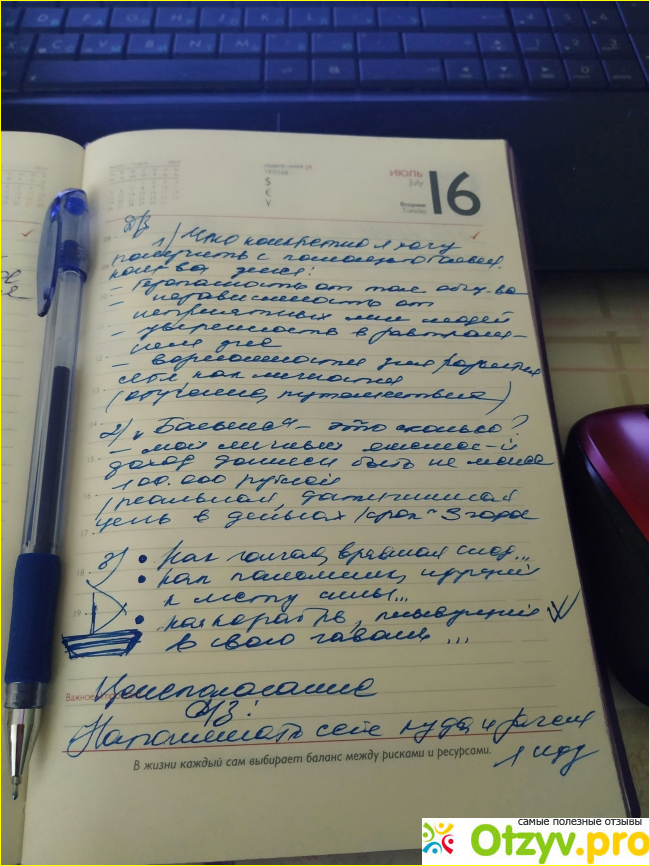 ИЮЛЬ
July
16
Вторник
Tuesday
$
€
¥
Д/з
1) Что конкретно я хочу
получить с помощью больших
денег:
- независимость от
неприятных мне людей
- уверенность в завтраш-
нем дне
- возможности для развития
себя как личности
(обучение, путешествия)
2) "Большая - это сколько?
- мой личный ежемес-й
доход должен быть не менее
100.000 рублей
(реальная, достижимая
цель в деньгах / срок ~ 3 года
3) • Как
• как паломник, идущий
к месту силы...
• как корабль, плывущий
в свою гавань ...
Целеполагание
Важное
Д/З:
Напоминать себе куда и зачем
я иду
В жизни каждый сам выбирает баланс между рисками и ресурсами.
самые полезные отзывы
Otzyv.pro